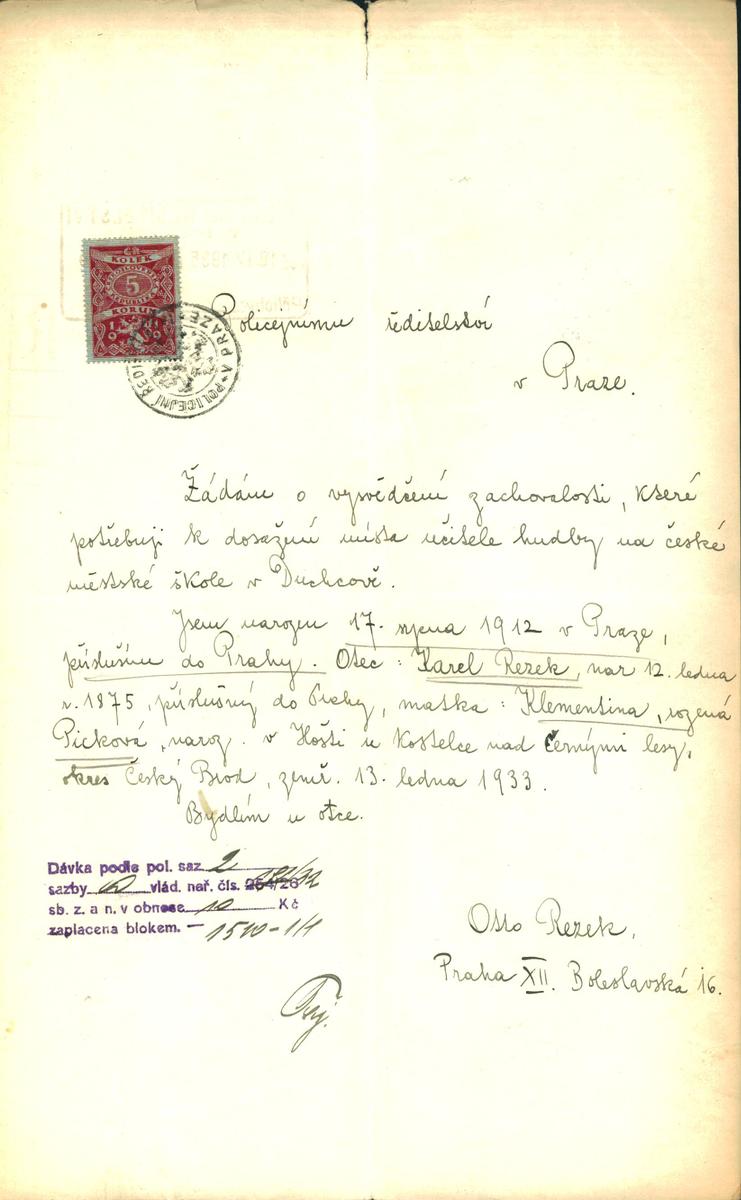 ČR
KOLEK
5
KORUN
1919
POLICEJNÍ ŘEDITELSTVÍ V PRAZE
Policejnímu ředitelství
v Praze.
Žádám o vysvědčení zachovalosti, které
potřebuji k dosažení místa učitele hudby na české
městské škole v Duchcově.
Jsem narozen 17. srpna 1912 v Praze,
přísluším do Prahy. Otec: Karel Rezek, nar 12. ledna
r. 1875, příslušný do Prahy, matka: Klementina, rozená
Picková, naroz. v Hošti u Kostelce nad Černými lesy,
okres Český Brod, zemř. 13. ledna 1933.
Bydlím u otce.
Dávka podle pol. saz. 2
sazby vlád. nař. čís. 254/26
sb. z. a n. v obnose 10 Kč
zaplacena blokem.
Otto Rezek,
Praha XII. Boleslavská 16.